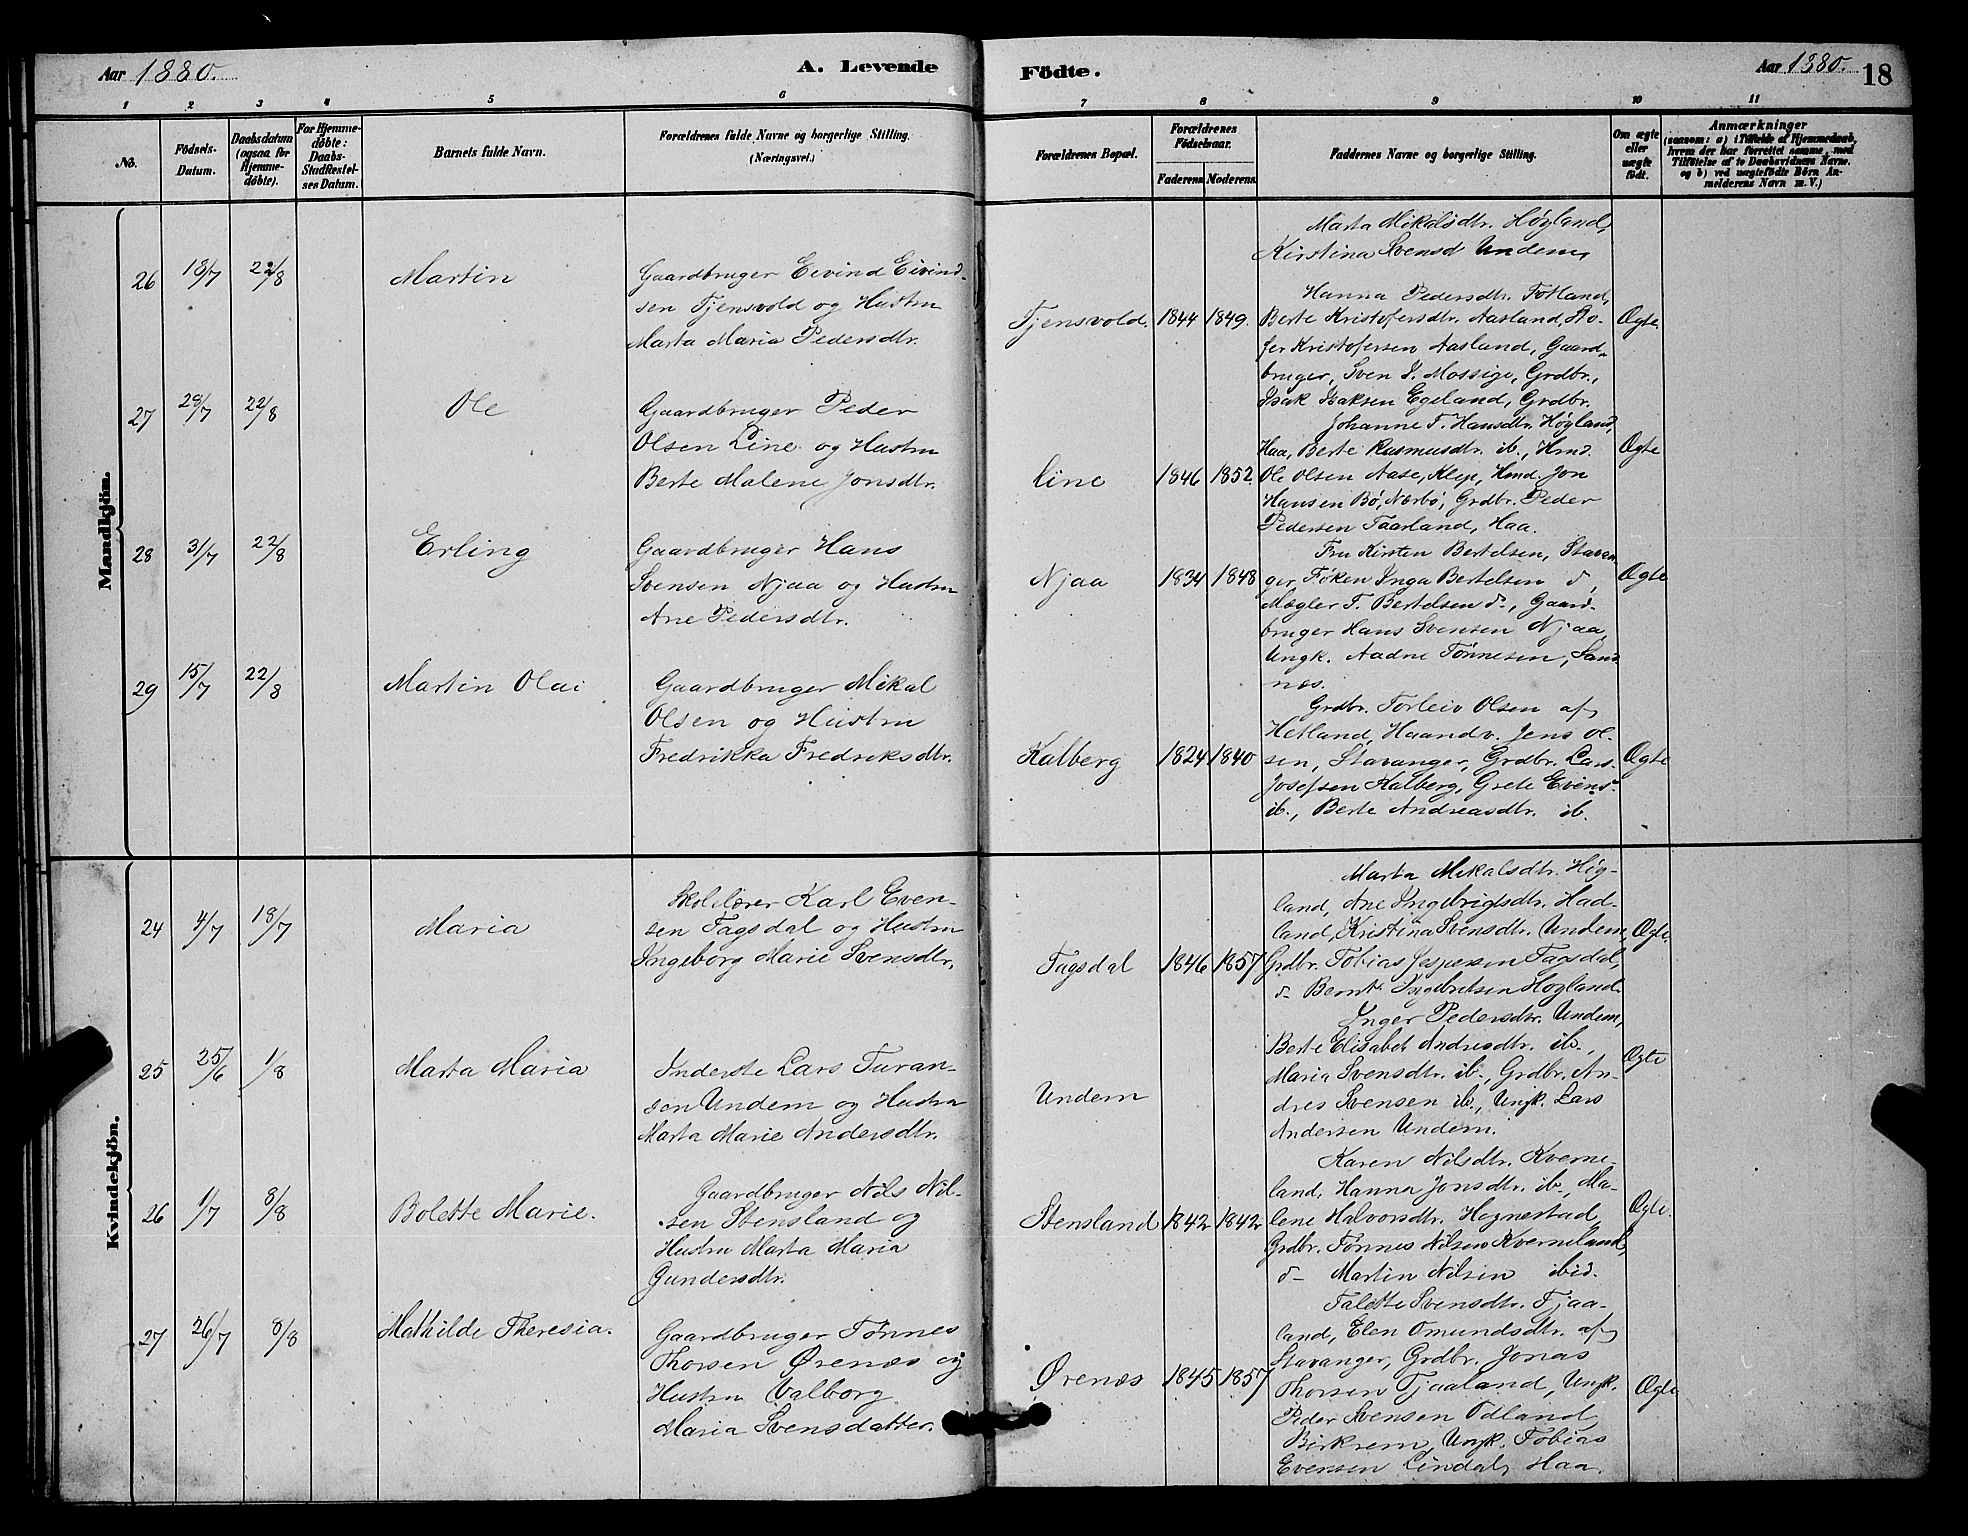 Aar 1880.
A. Levende
Födte.
Aar 1880.
18
1 2 3 4 5 6 7 8 9 10 11
No.
Födsels-
Datum.
Daabsdatum
(ogsaa for
Hjemme-
döbte).
For Hjemme-
döbte:
Daabs-
Stadfæstel-
ses Datum.
Barnets fulde Navn.
Forældrenes fulde Navne og borgerlige Stilling.
(Næringsvei.)
Forældrenes Bopæl.
Forældrenes
Födselsaar.
Faderens. Moderens.
Faddernes Navne og borgerlige Stilling.
Om ægte
eller
uægte
födt.
Anmærkninger
(saasom: a) i Tilfælde af Hjemmedaab,
hvem der har forrettet samme, med
Tilföielse af to Daabsvidners Navne.
og b) ved uægtefödte Börn An-
melderens Navn m. V.)
Mandkjön.
26 18/7 22/8 Martin
Gaardbruger Eivind Eivind-
sen Tjensvold og Hustru
Marta Maria Pedersdtr.
Tjensvold. 1844 1849.
Marta Mikalsdtr. Høyland,
Kirstina Svensd Undem,
Hanna Pedersdtr. Fotland,
Berte Kristofersdtr. Aasland,
fer Kristofersen Aasland, Gaard-
bruger, Sven J. Mossige, Grdbr.,
Isak Isaksen Egeland, Grdbr.
Ægte.
27 28/7 22/8 Ole
Gaardbruger Peder
Olsen Line og Hustru
Berte Malene Jonsdtr.
Line 1846 1852.
Johanne T. Hansdtr. Høyland,
Haa, Berte Rasmusdtr. ib., Hmd.
Ole Olsen Aase, Klep, Hmd. Jon
Hansen Bø, Nærbø, Grdbr. Peder
Pedersen Taarland, Haa.
Ægte
28 31/7 22/8 Erling
Gaardbruger Hans
Svensen Njaa og Hustru
Ane Pedersdtr.
Njaa 1834 1848
Fru Kirsten Bertelsen, Stavan
ger, Frøken Inga Bertelsen do,
Mægler T. Bertelsen do., Gaard-
bruger Hans Svensen Njaa,
Ungk. Aadne Tønnesen, Sand
næs.
Ægte
29 15/7 22/8 Martin Olai
Gaardbruger Mikal
Olsen og Hustru
Fredrikka Fredriksdtr.
Kalberg 1824 1840
Grdbr. Torleiv Olsen af
Hetland, Haandv. Jens Ol-
sen, Stavanger, Grdbr. Lars
Josefsen Kalberg, Grete Evens-
ib., Berte Andreasdtr. ib.
Ægte
Kvindekjön.
24 4/7 18/7 Maria
Skolelærer Karl Even-
sen Tagsdal og Hustru
Ingeborg Marie Svensdtr.
Tagsdal 1846 1857
Marta Mikalsdtr. Høg-
land, Ane Ingebrigtsdtr. Had-
land, Kristina Svensdtr. Undem,
Grdbr. Tobias Jaspersen Tagsdal,
do Bernt Ingebretsen Høyland.
Ægte.
25 25/6 1/8 Marta Maria
Inderste Lars Turan-
sen Undem og Hustru
Marta Marie Andersdtr.
Undem
Inger Pedersdtr. Undem,
Berte Elisabet Andreasdtr. ib.,
Maria Svensdtr. ib., Grdbr. An-
dres Svensen ib., Ungk. Lars
Andersen Undem.
Ægte
26 1/7 8/8 Bolette Marie.
Gaardbruger Nils Nil-
sen Stensland og
Hustru Marta Maria
Gundersdtr.
Stensland 1842 1842
Karen Nilsdtr. Kverne-
land, Hanna Jonsdtr. ib., Ma-
lene Halvorsdtr. Hognestad,
Grdbr. Tønnes Nilsen Kverneland,
do Martin Nilsen ibid.
Ægte.
27 26/7 8/8 Mathilde Theresia.
Gaardbruger Tønnes
Thorsen Ørenæs og
Hustru Valborg
Maria Svensdatter.
Ørenæs 1845 1857
Talette Svensdtr. Tjaa-
land, Elen Omundsdtr. af
Stavanger, Grdbr. Jonas
Thorsen Tjaaland, Ungk.
Peder Svensen Odland,
Birkrem, Ungk. Tobias
Evensen Lindal, Haa.
Ægte